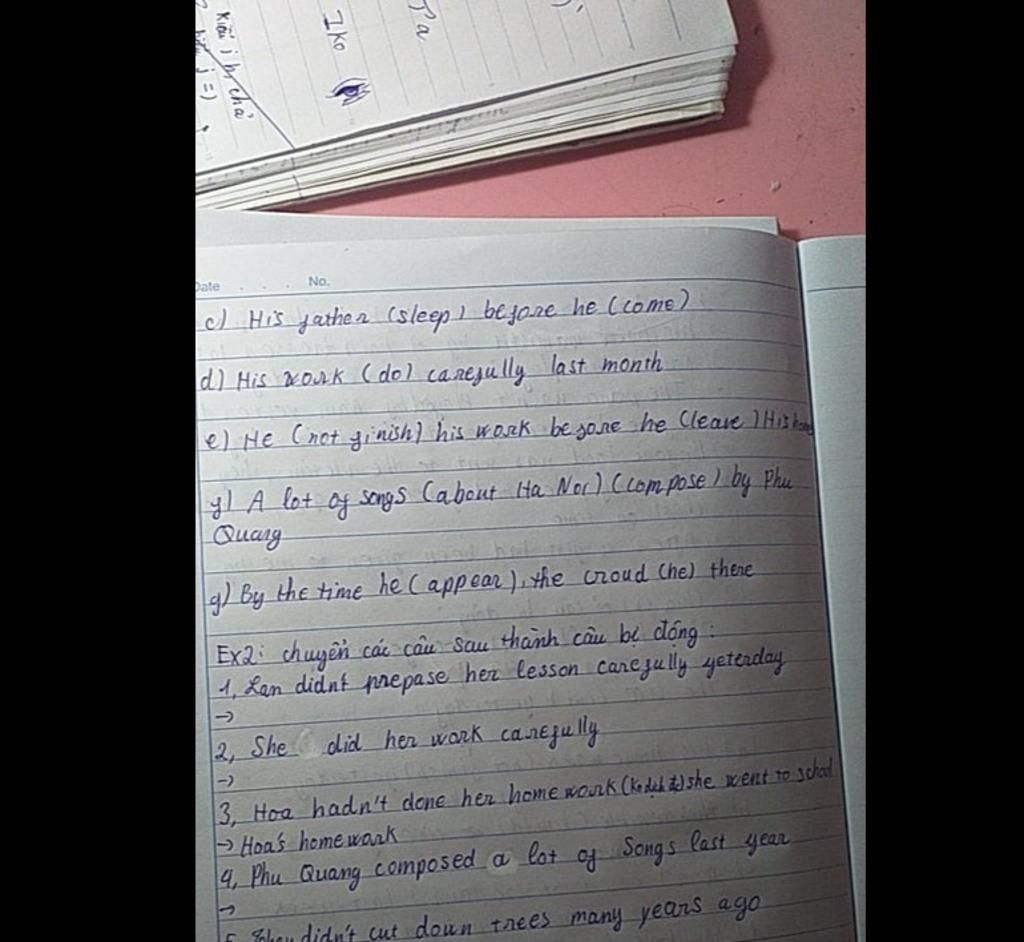 Kiểu j
Iko
Ta
Date No.
c) His father (sleep) before he (come)
d) His work (do) carefully last month
e) He (not finish) his work before he (leave) His
f) A lot of songs (about Ha Noi) (compose) by Phu
Quang
g) By the time he (appear), the croud (he) there
Ex2: chuyển các câu sau thành câu bị động:
1, Lan didn't prepase her lesson carefully yeterday
→
2, She did her work carefully
→
3, Hoa hadn't done her homework she went to school
→ Hoa's homework
4, Phu Quang composed a lot of songs last year
→
5, They didn't cut down trees many years ago